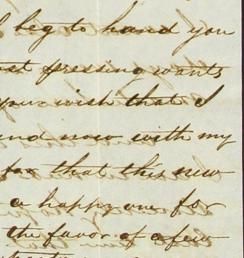 I beg to hand you
pressing wants
your wish that I
now with my
for that this new
a happy one for
the favor of a few